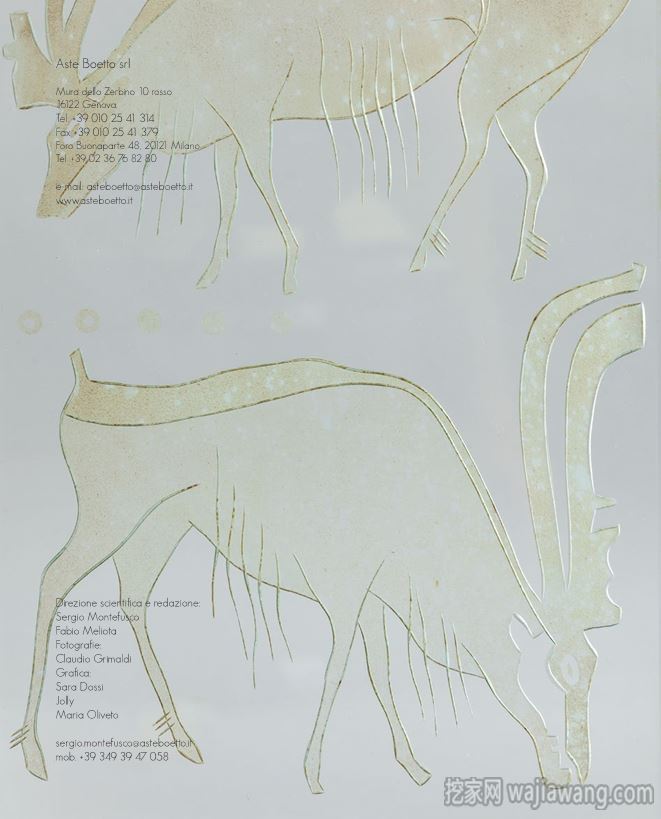 Aste Boetto srl
Mura dello Zerbino 10 rosso
16122 Genova
Tel. +39 010 25 41 314
Fax +39 010 25 41 379
Foro Buonaparte 48, 20121 Milano
Tel +39 02 36 76 82 80
e-mail: asteboetto@asteboetto.it
www.asteboetto.it
Direzione scientifica e redazione:
Sergio Montefusco
Fabio Meliota
Fotografie:
Claudio Grimaldi
Grafica:
Sara Dossi
Jolly
Maria Oliveto
sergio.montefusco@asteboetto.it
mob. +39 349 39 47 058
挖家网 wajiawang.com